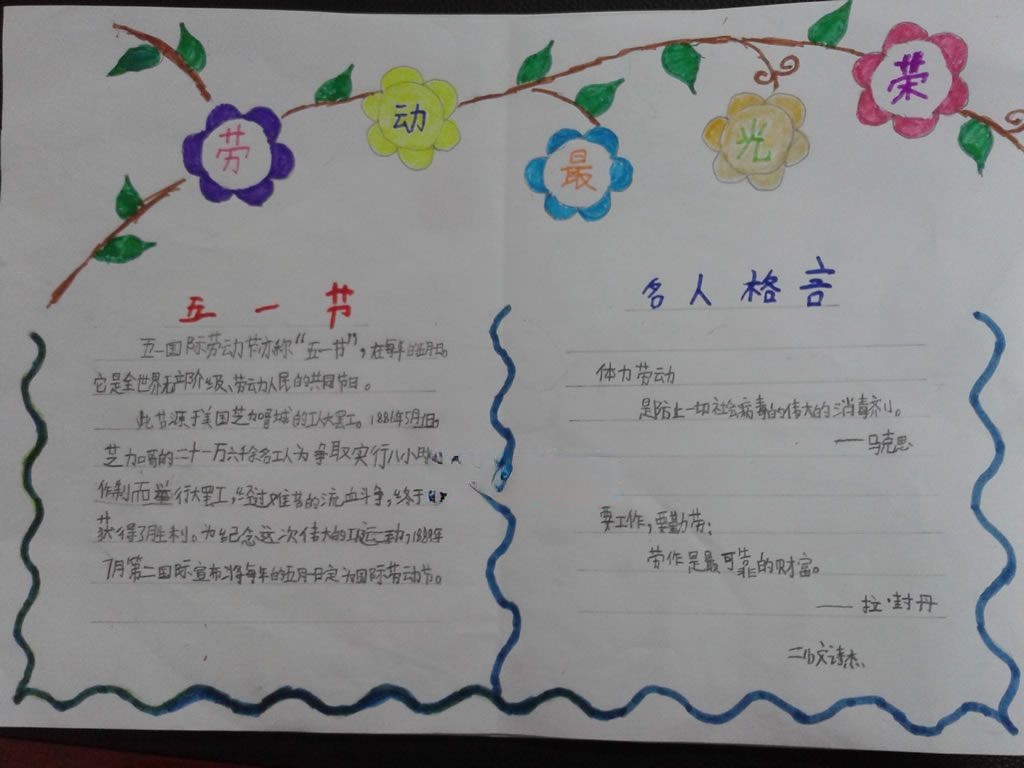 劳动最光荣
五一节
五一国际劳动节亦称“五一节”，在每年的五月一日。
它是全世界无产阶级、劳动人民的共同节日。
此节源于美国芝加哥城的工人大罢工。1886年5月1日，
芝加哥的二十一万六千余名工人为争取实行八小时
作制而举行大罢工，经过艰苦的流血斗争，终于
获得了胜利。为纪念这次伟大的工人运动，1889年
7月第二国际宣布将每年的五月一日定为国际劳动节。
名人格言
体力劳动
是防止一切社会病毒的伟大的消毒剂。
——马克思
要工作，要勤劳：
劳作是最可靠的财富。
——拉·封丹